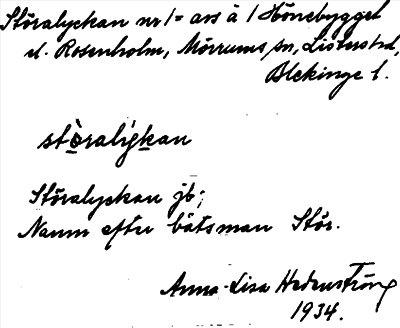 Störalyckan nr 1 = avs å 1 Hönebygget
el. Rosenholm, Mörrums sn, Listers hd,
Blekinge l.
stö̀ralig̀kan
Störalyckan jb;
Namn efter båtsman Stör.
Anna-Lisa Hedenström
1934.